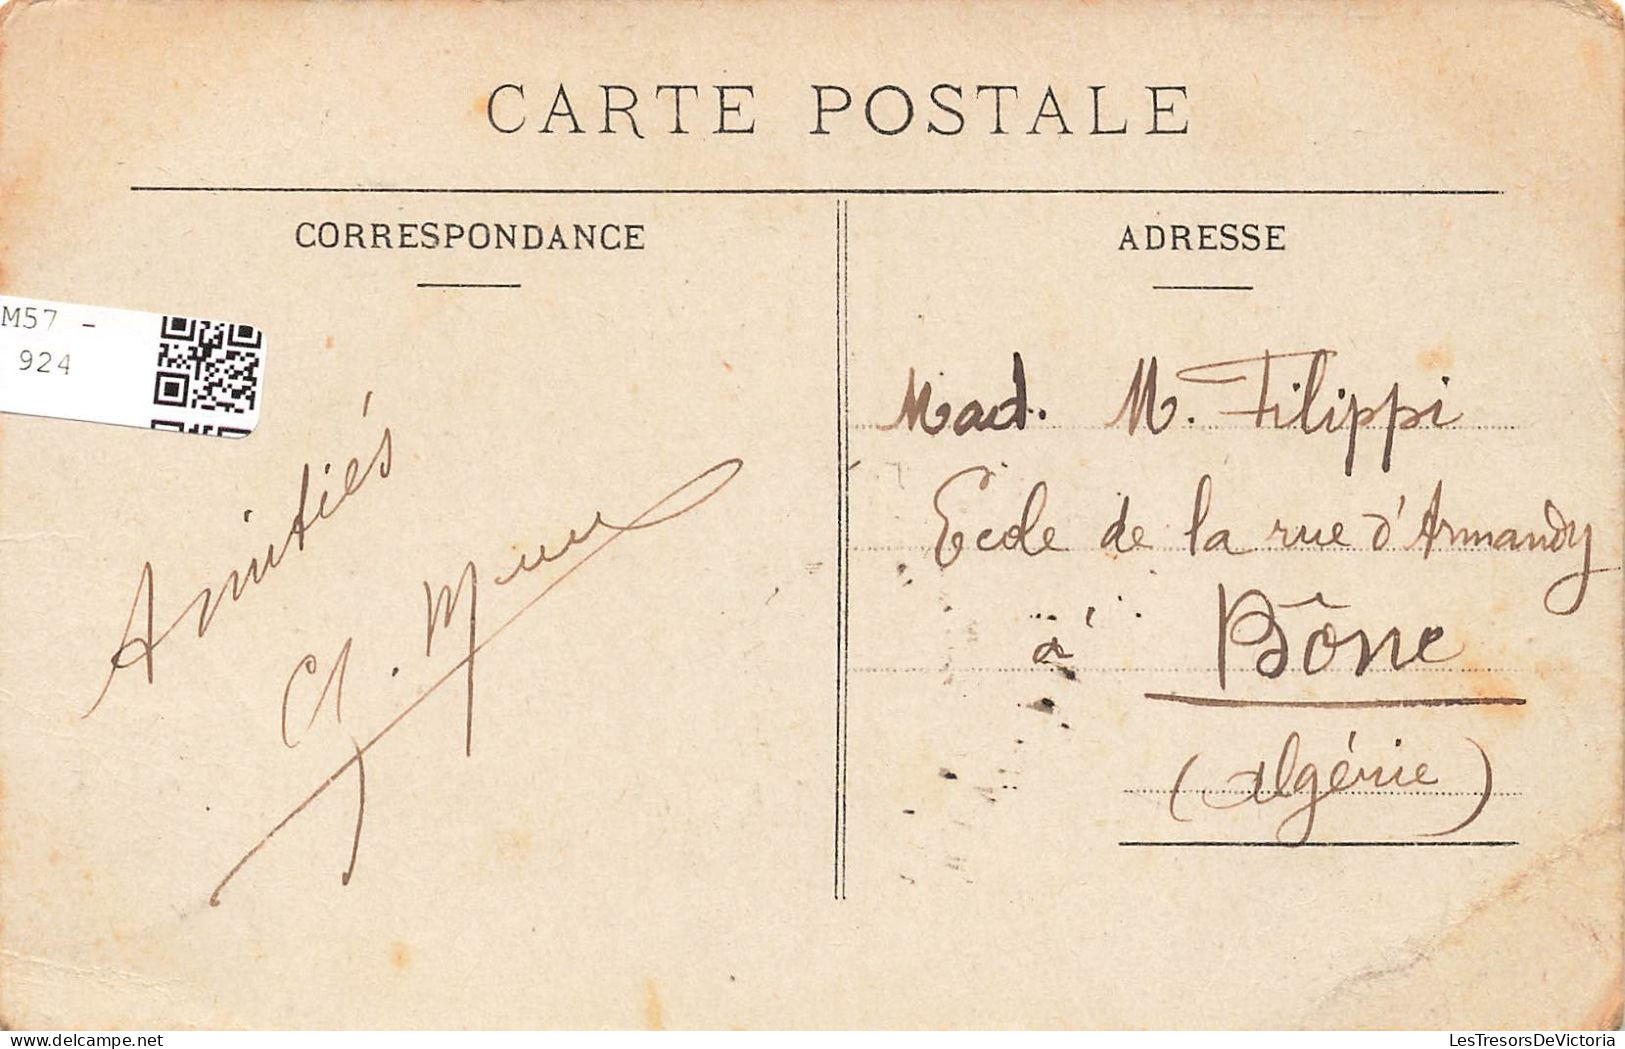 CARTE POSTALE
CORRESPONDANCE
ADRESSE
M57 -
924
Amitiés
Mad. M. Filippi
Ecole de la rue d'Armandy
à Bône
(Algérie)
LesTresorsDeVictoria
delcampe.net